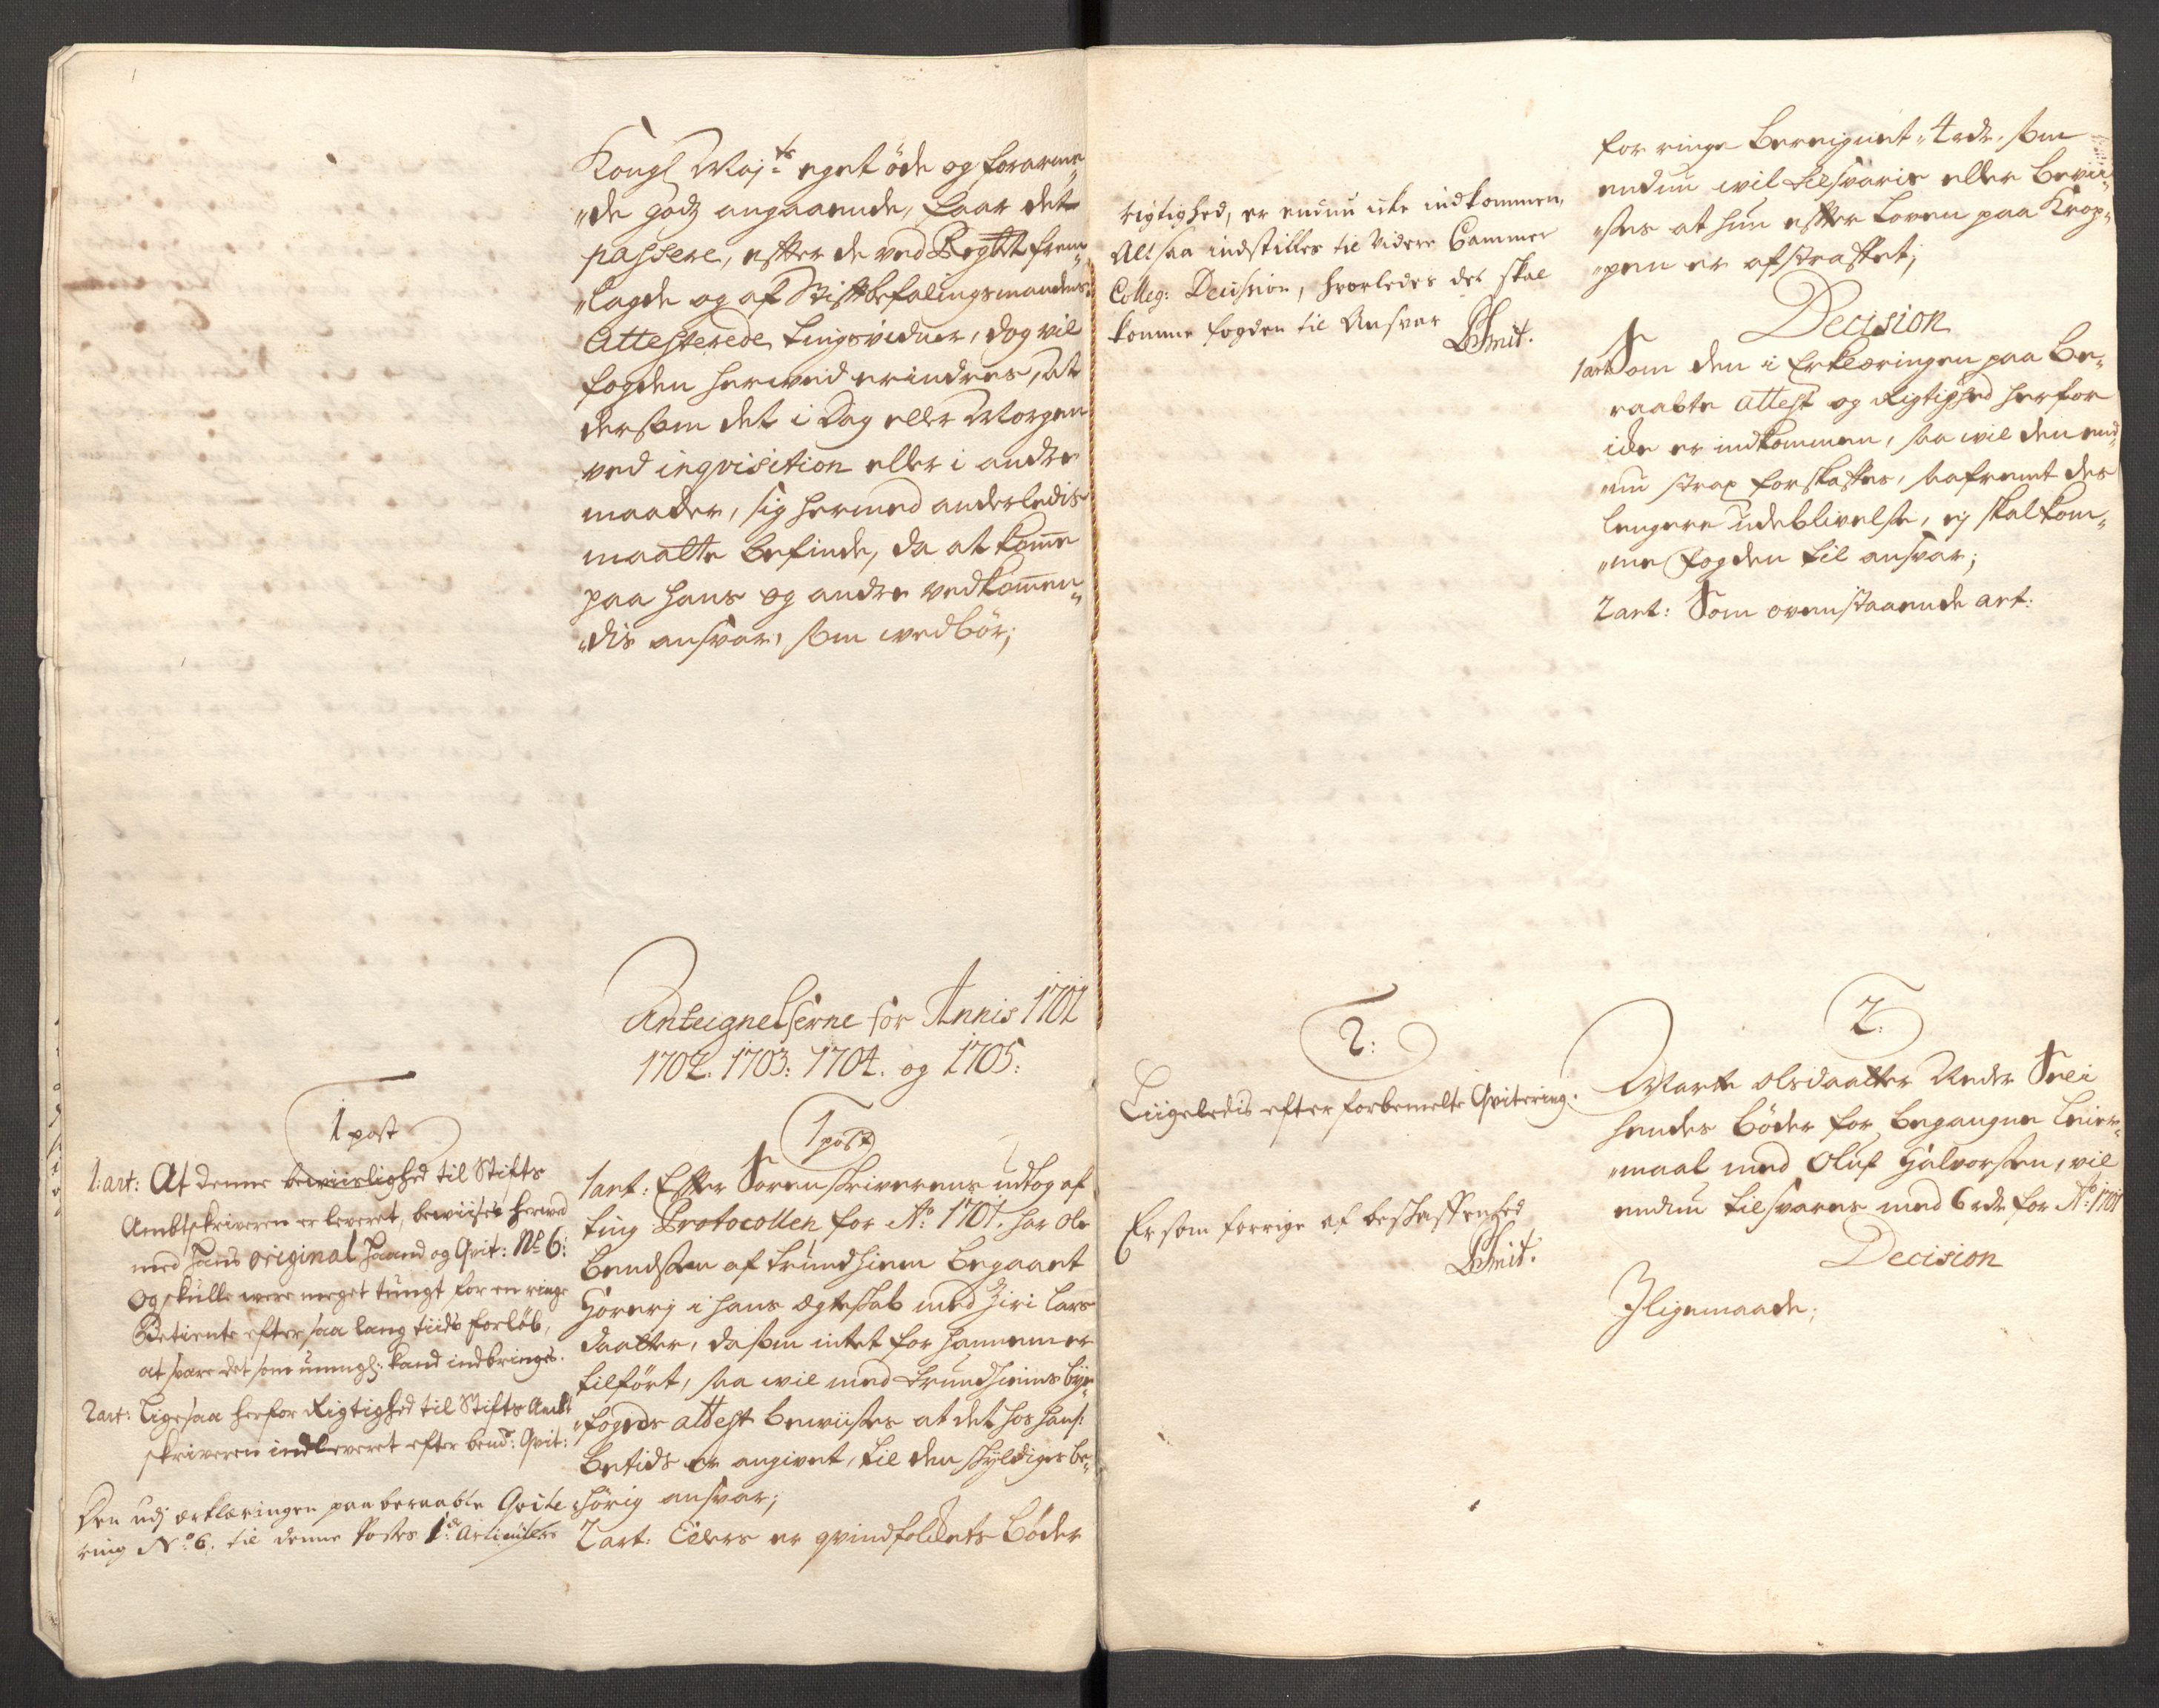 Kongl Maj:ts eget öde og forarme„
„de godz angaaende, faar det
passere, effter de ved Regnsk: frem„
„lagde og af Stiftbefalingsmanden
Attesterede tingsvidner, dog vil
fogden herved erindres, at
dersom det i Dag eller Morgen
ved inqvisition eller i andre
maader, sig hermed anderledis
maatte befinde, da at komme
paa hans og andre vedkommen„
„dis ansvar, som wedbör;
Anteignelserne for Annis 1701
1702. 1703: 1704. og 1705:
1 post
1:art: At denne bewiislighed til Stifts
Ambtskriveren er leveret, bewiises herwed
med hans original haand og Qvit: No 6:
Og skulle were meget tungt for en ringe
Betiente efter saa lang tiids forlöb,
at svare det som umugl: kand indbringes.
2 art: Ligesaa herfor Rigtighed til Stifts Ambt
skriveren indleveret efter bend: Qvit:
Den udj erklæringen paaberaabte Qvite
ring No 6. til denne Postes 1de Articulers
1 post
1 art: Effter Sorenskriverens udtog af
ting Protocollen for Ao 1701. har Ole
Bendsen af Trundhiem begaaet
Horerj i hans Ægteskab med Ziri Lars
daatter, dasom intet for hannem er
tilfört, saa wil med Trundhiems bye„
„fogeds attest bewiises at det hos hans
betids er angivet, til den skyldiges be„
„hörig ansvar;
2 art: Ellers er qvindfolckets Böder
rigtighed, er endnu icke indkommen,
Altsaa indstilles til Videre Cammer
Colleg: Decision, hvorledes det skal
komme fogden til Ansvar
Schmit.
2:
Liigeledis efter forbemelte Qvitering.
Er som forrige af beskaffenhed
Schmit.
for ringe bereignet 4 rdr. som
endnu wil tilsvaris eller bevii„
„ses at hun effter loven paa Krop„
„pen er afstraffet;
Decision
1 art: Som den i Erklæringen paa be„
raabte attest og Rigtighed herfor
icke er indkommen, saa wil den end„
„nu strax forskaffes, saafremt det
lengere udeblivelse, ej skal kom„
„me fogden til ansvar;
2 art: Som ovenstaaende art:
2.
Marte Olsdaatter Neder Snei
hendes böder for begangne leier„
„maal med Oluf Halvorsen, vil
endnu tilsvares med 6 rdr for Ao: 1701
Decision
Jligemaade;